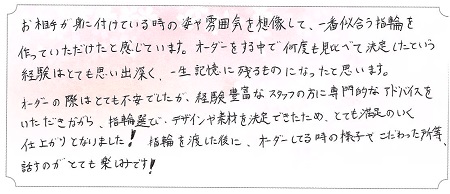 お相手が身に付けている時の姿や雰囲気を想像して、一番似合う指輪を
作っていただけたと感じています。オーダーをする中で何度も見比べて決定したという
経験はとても思い出深く、一生記憶に残るものになったと思います。
オーダーの際はとても不安でしたが、経験豊富なスタッフの方に専門的なアドバイスを
いただきながら、指輪選び・デザインや素材を決定できたため、とても満足のいく
仕上がりとなりました！ 指輪を渡した後に、オーダーしてる時の様子やこだわった所等、
話すのがとても楽しみです！